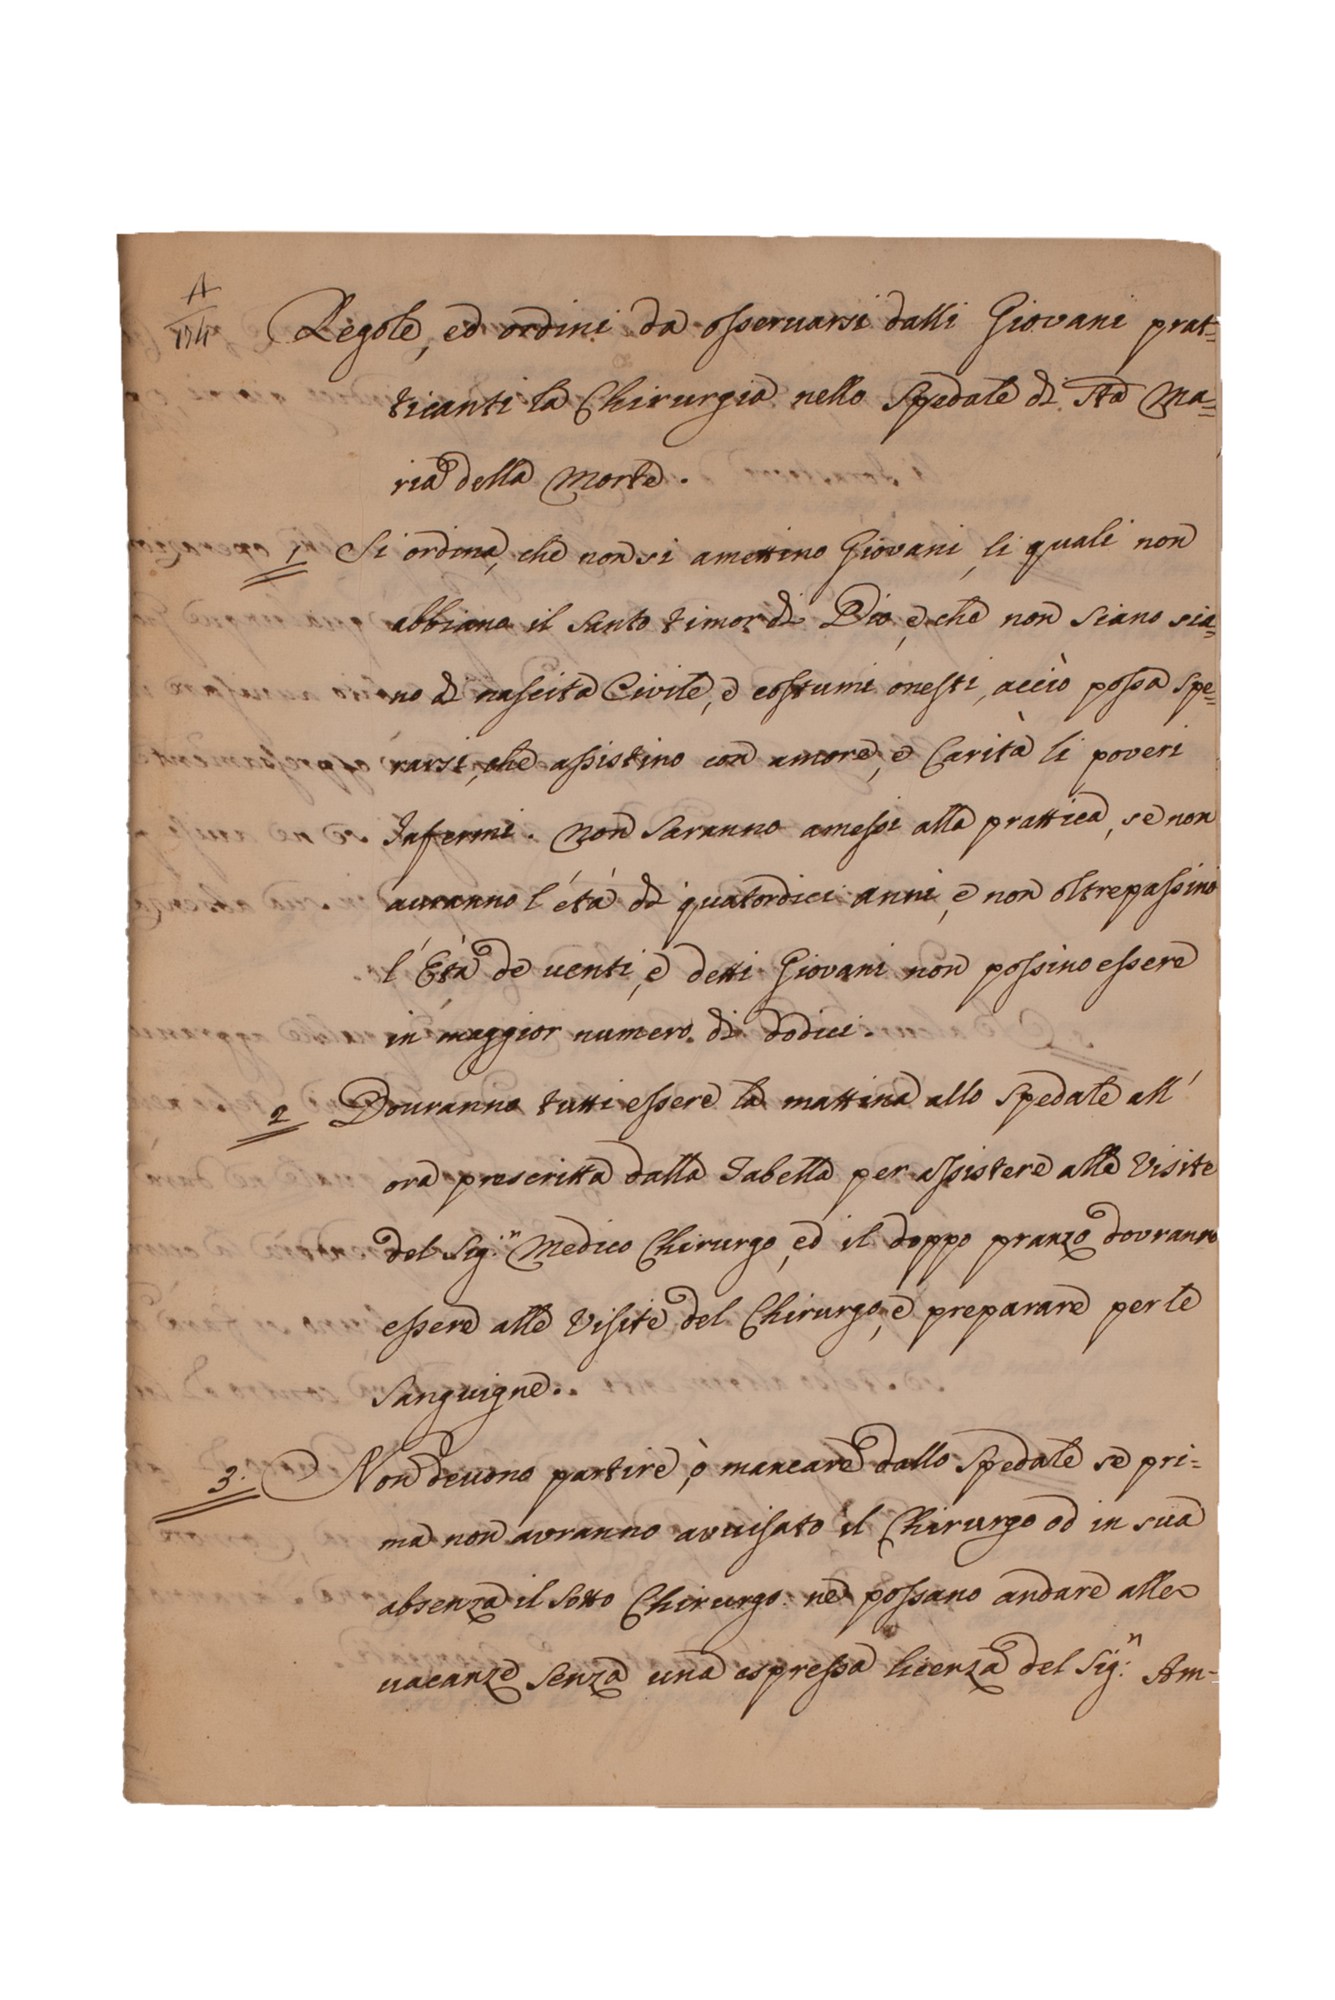 A
Regole, ed ordini da osservarsi dalli Giovani prat-
ticanti la Chirurgia nello Spedale di Sta Ma-
ria della Morte.
1 Si ordina, che non si amettino Giovani, li quali non
abbiano il santo timor di Dio, e che non siano sia-
no di nascita Civile, e costumi onesti, acciò possa spe-
rarsi, che assistino con amore, e Carità li poveri
Infermi. Non saranno amessi alla prattica, se non
auranno l'étá di quatordici anni, e non oltrepassino
l'Età de uenti, é detti Giovani non possino essere
in maggior numero di dodici.
2 Douranno tutti essere la mattina allo Spedale all'
ora prescritta dalla Tabella per assistere alle Visite
del Sig.r Medico Chirurgo, ed il doppo pranzo dovranno
essere alle Visite del Chirurgo, e preparare per le
Sanguigne.
3. Non deuono partire, ò mancare dallo Spedale se pri-
ma non avranno avuisato il Chirurgo od in sua
absenza il Sotto Chirurgo: nè possano andare alle
uacanze senza una espressa licenza del Sig.r Am-